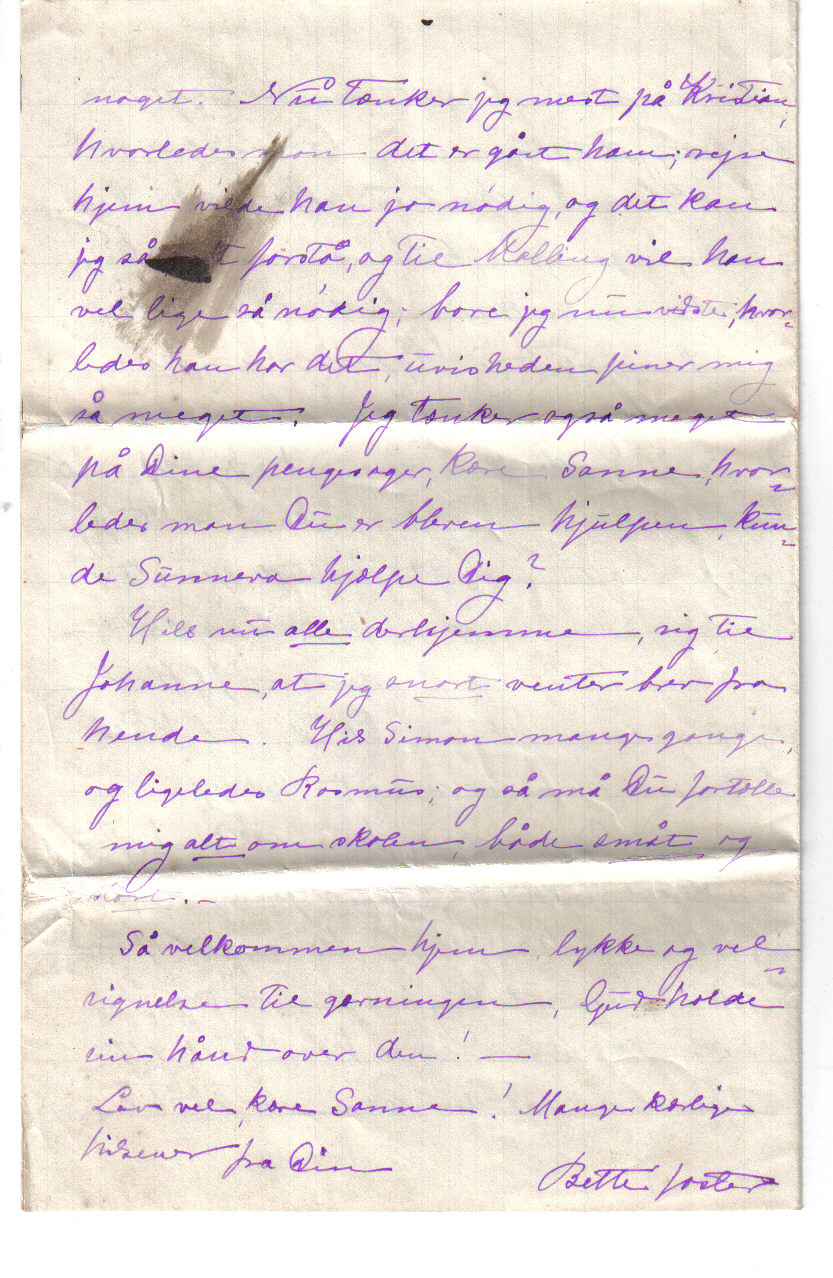 noget. Nu tænker jeg mest på Kristian,
hvorledes mon det er gået ham; rejse
hjem vilde han jo nødig, og det kan
jg så forstå, og til Malling vil han
vel lige så nødig; bare jeg nu vidste, hvor-
ledes han har det, uvisheden piner mig
så meget. Jeg tænker også meget
på Dine pengesager, kære Sanne, hvor-
ledes mon Du er bleven hjulpen, kun-
de Sunneva hjælpe Dig?
Hils nu alle derhjemme, sig til
Johanne, at jeg snart venter brev fra
hende. Hils Simon mange gange,
og ligeledes Rasmus; og så må Du fortælle
mig alt om skolen, både småt og
stort. –
Så velkommen hjem, lykke og vel-
signelse til gærningen, Gud holde
sin hånd over den! —
Lev vel, kære Sanne! Mange kærlige
hilsener fra Din
Bette